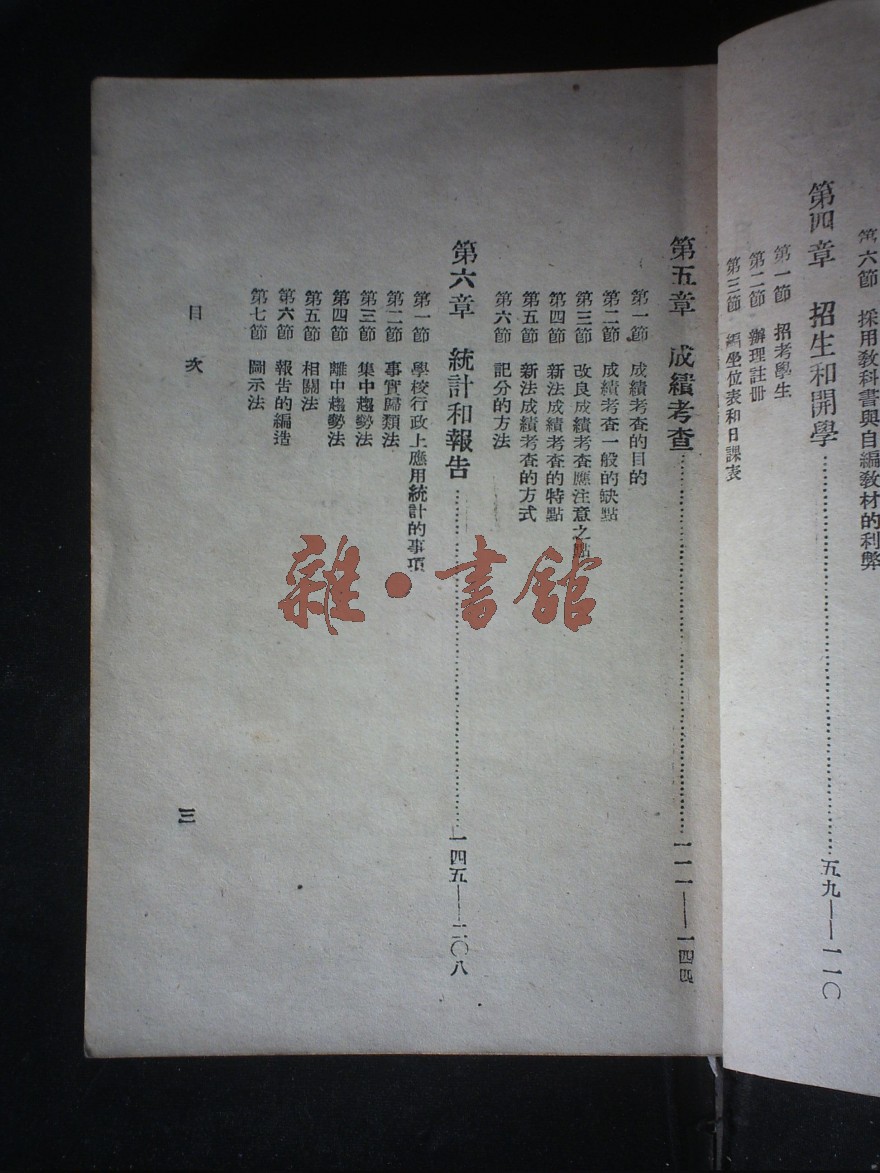 第六節　採用教科書與自編教材的利弊
第四章　招生和開學……五九——一一〇
第一節　招考學生
第二節　辦理註册
第三節　編坐位表和日課表
第五章　成績考查……一一一——一四四
第一節　成績考查的目的
第二節　成績考查一般的缺點
第三節　改良成績考查應注意之點
第四節　新法成績考查的特點
第五節　新法成績考查的方式
第六節　記分的方法
第六章　統計和報告……一四五——二〇八
第一節　學校行政上應用統計的事項
第二節　事實歸類法
第三節　集中趨勢法
第四節　離中趨勢法
第五節　相關法
第六節　報告的編造
第七節　圖示法
目次
三
雜·書館